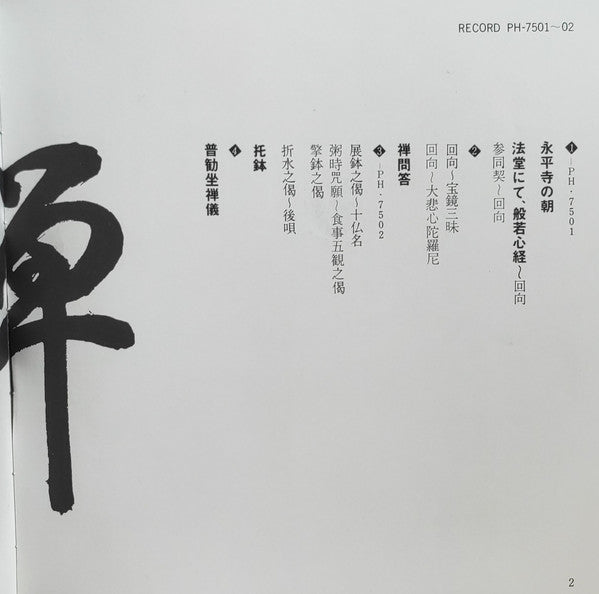 RECORD PH-7501〜02
❶—PH・7501
永平寺の朝
法堂にて、般若心経〜回向
参同契〜回向
❷
回向〜宝鏡三昧
回向〜大悲心陀羅尼
禅問答
❸—PH・7502
展鉢之偈〜十仏名
粥時咒願〜食事五観之偈
擎鉢之偈
折水之偈〜後唄
托鉢
❹
普勧坐禅儀
2